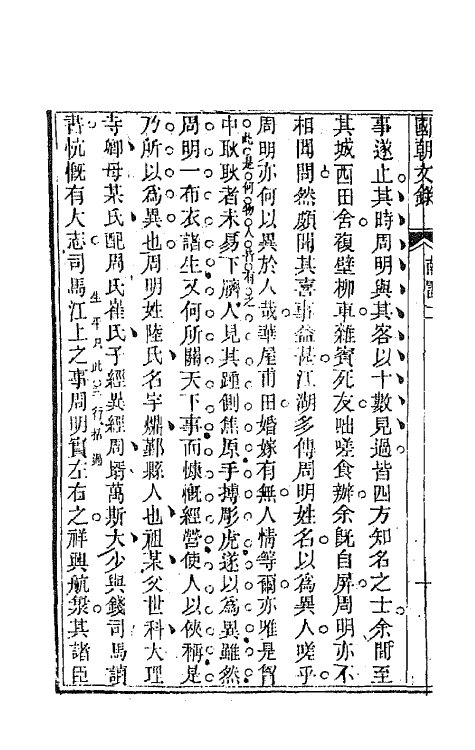 國朝文錄
南雷
事遂止其時周明與其客以十數見過皆四方知名之士余間至
其城西田舍複壁柳車雜賓死友咄嗟食辦余旣自屏周明亦不
相聞問然頗聞其喜事益甚江湖多傳周明姓名以為異人嗟乎
周明亦何以異於人哉華屋甫田婚嫁有無人情等爾亦唯是胷
此是何物人皆有之
中耿耿者未易下臍人見其踵側焦原手搏彫虎遂以為異雖然
周明一布衣諸生又何所關天下事而慷慨經營使人以俠稱是
乃所以為異也周明姓陸氏名宇𤐣鄞縣人也祖某父世科大理
寺卿母某氏配周氏崔氏子經異經周壻萬斯大少與錢司馬讀
生平只此三行括過
書忼慨有大志司馬江上之事周明實左右之祥興航裝其諸臣